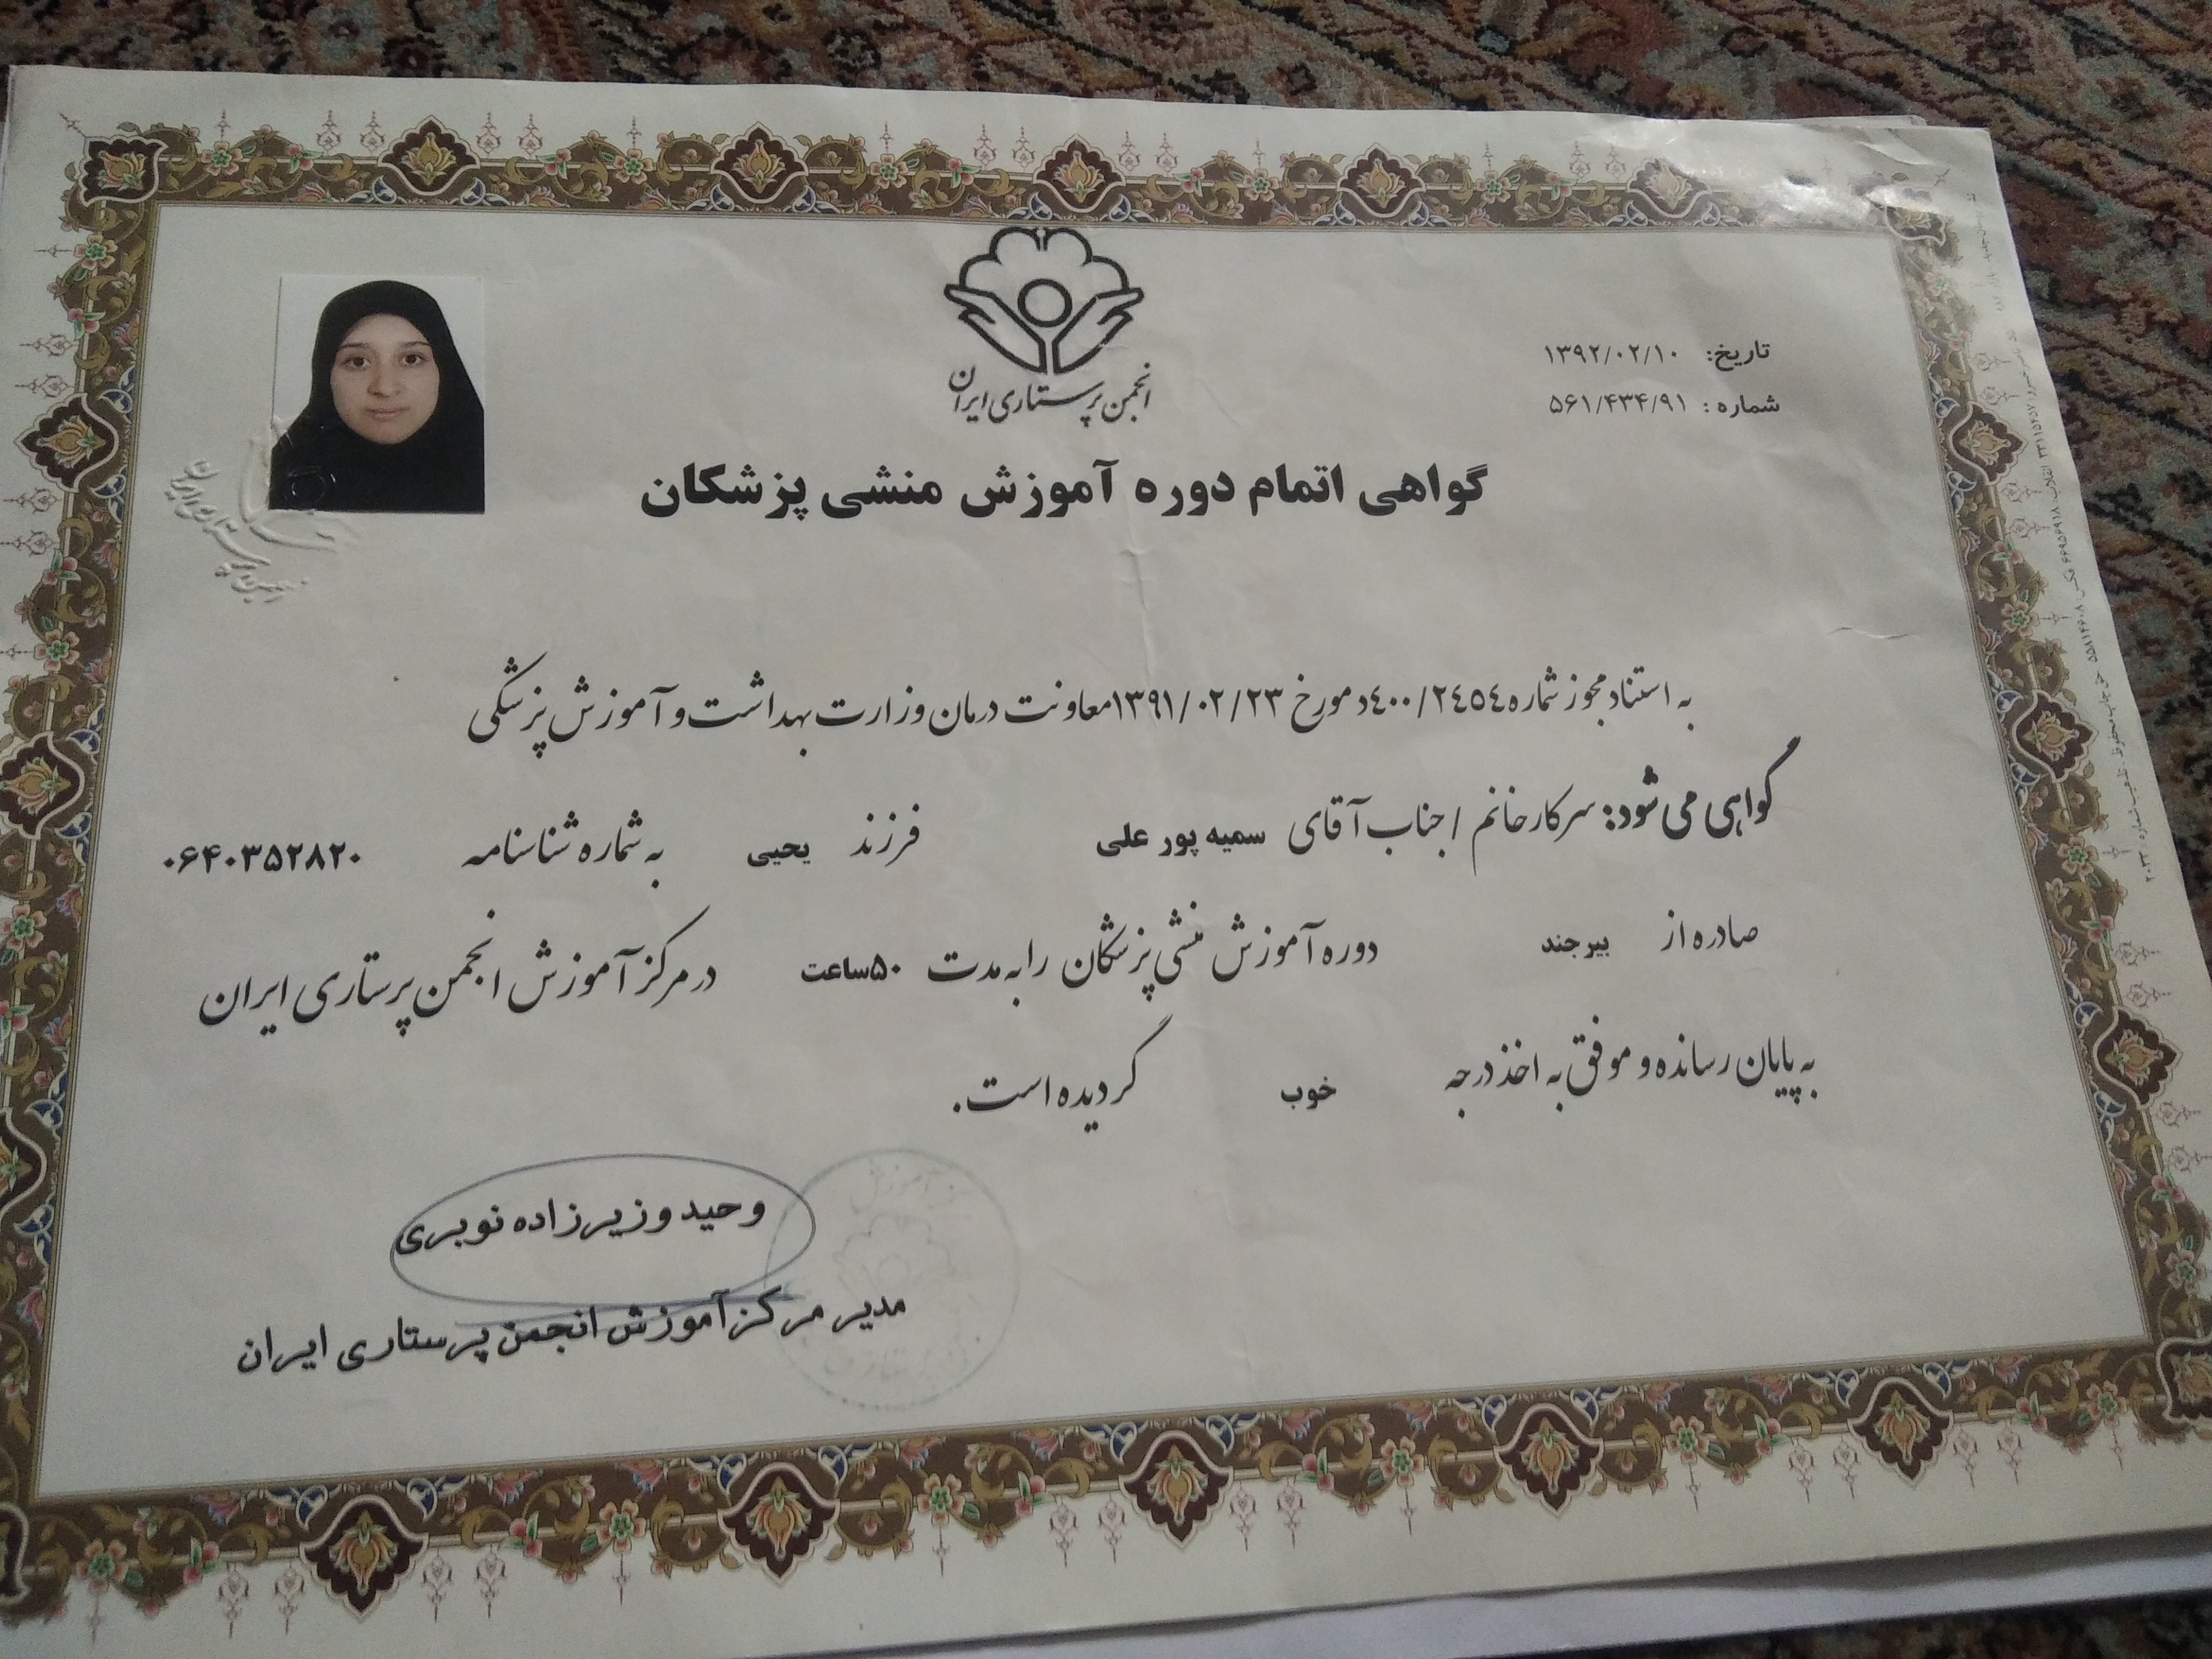 انجمن پرستاری ایران
تاریخ: ۱۳۹۲/۰۲/۱۰
شماره: ۵۶۱/۴۳۴/۹۱
گواهی اتمام دوره آموزش منشی پزشکان
به استناد مجوز شماره ۴۰۰/۲۴۵۴د مورخ ۱۳۹۱/۰۲/۲۳ معاونت درمان وزارت بهداشت و آموزش پزشکی
گواهی می شود: سرکار خانم / جناب آقای سمیه پور علی فرزند یحیی به شماره شناسنامه ۰۶۴۰۳۵۲۸۲۰
صادره از بیرجند دوره آموزش منشی پزشکان را به مدت ۵۰ساعت در مرکز آموزش انجمن پرستاری ایران
به پایان رسانده و موفق به اخذ درجه خوب گردیده است.
وحید وزیرزاده نوبری
مدیر مرکز آموزش انجمن پرستاری ایران